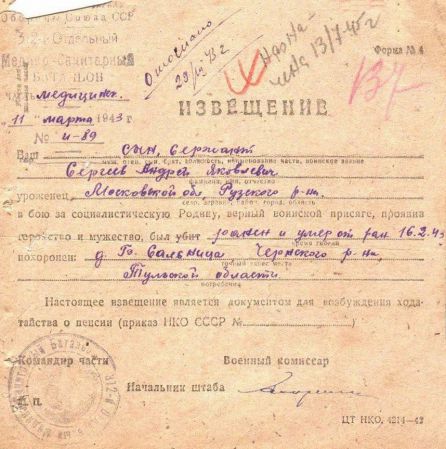 Обороны Союза ССР
312-й Отдельный
Медико-Санитарный
БАТАЛЬОН
часть медицинск.
11 марта 1943 г
№ и-89
Отослано
29/III 43 г
Назна-
чена 13/7-45 г
Форма № 4
137
ИЗВЕЩЕНИЕ
Ваш сын, сержант
Сергеев Андрей Яковлевич
фамилия, имя, отчество
уроженец Московской обл Рузского р-на
село, аграрий, район, город, область
в бою за социалистическую Родину, верный воинской присяге, проявив
геройство и мужество, был убит ранен и умер от ран 16.2.43
похоронен: д. Гр. Сальница Чернского р-на,
Тульской области
погребения
Настоящее извещение является документом для возбуждения хода-
тайства о пенсии (приказ НКО СССР №)
Командир части
Военный комиссар
Начальник штаба
М. П.
ЦТ НКО, 4214—42